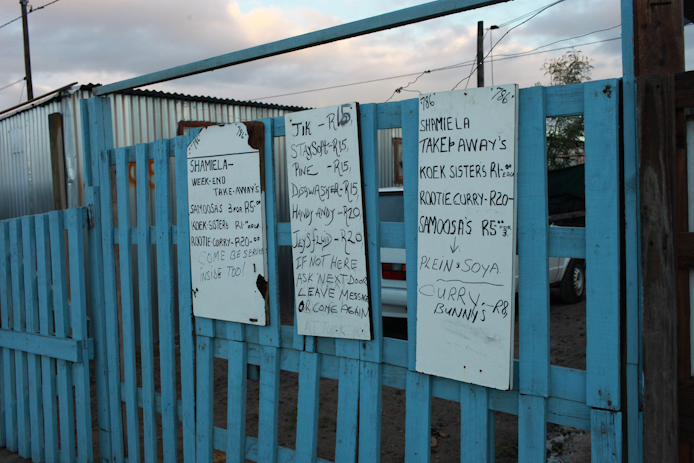 SHAMIELA-
WEEK-END
TAKE-AWAY'S
SAMOOSA'S 3 FOR R5.00
KOEK SISTERS R1.00
ROOTIE CURRY-R20-
COME BE SERVE
INSIDE TOO!
JIK - R15
STAYSOFT-R15,
PINE - R15,
DISHWASHER-R15
HANDY ANDY-R20
JEYS FLUID-R20
IF NOT HERE
ASK NEXT DOOR
LEAVE MESSAGE
OR COME AGAIN
786 786
SHAMIELA
TAKE AWAY'S
KOEK SISTERS R1.00
ROOTIE CURRY-R20-
SAMOOSA'S R5.00
PLEIN & SOYA.
CURRY - R8
BUNNY'S